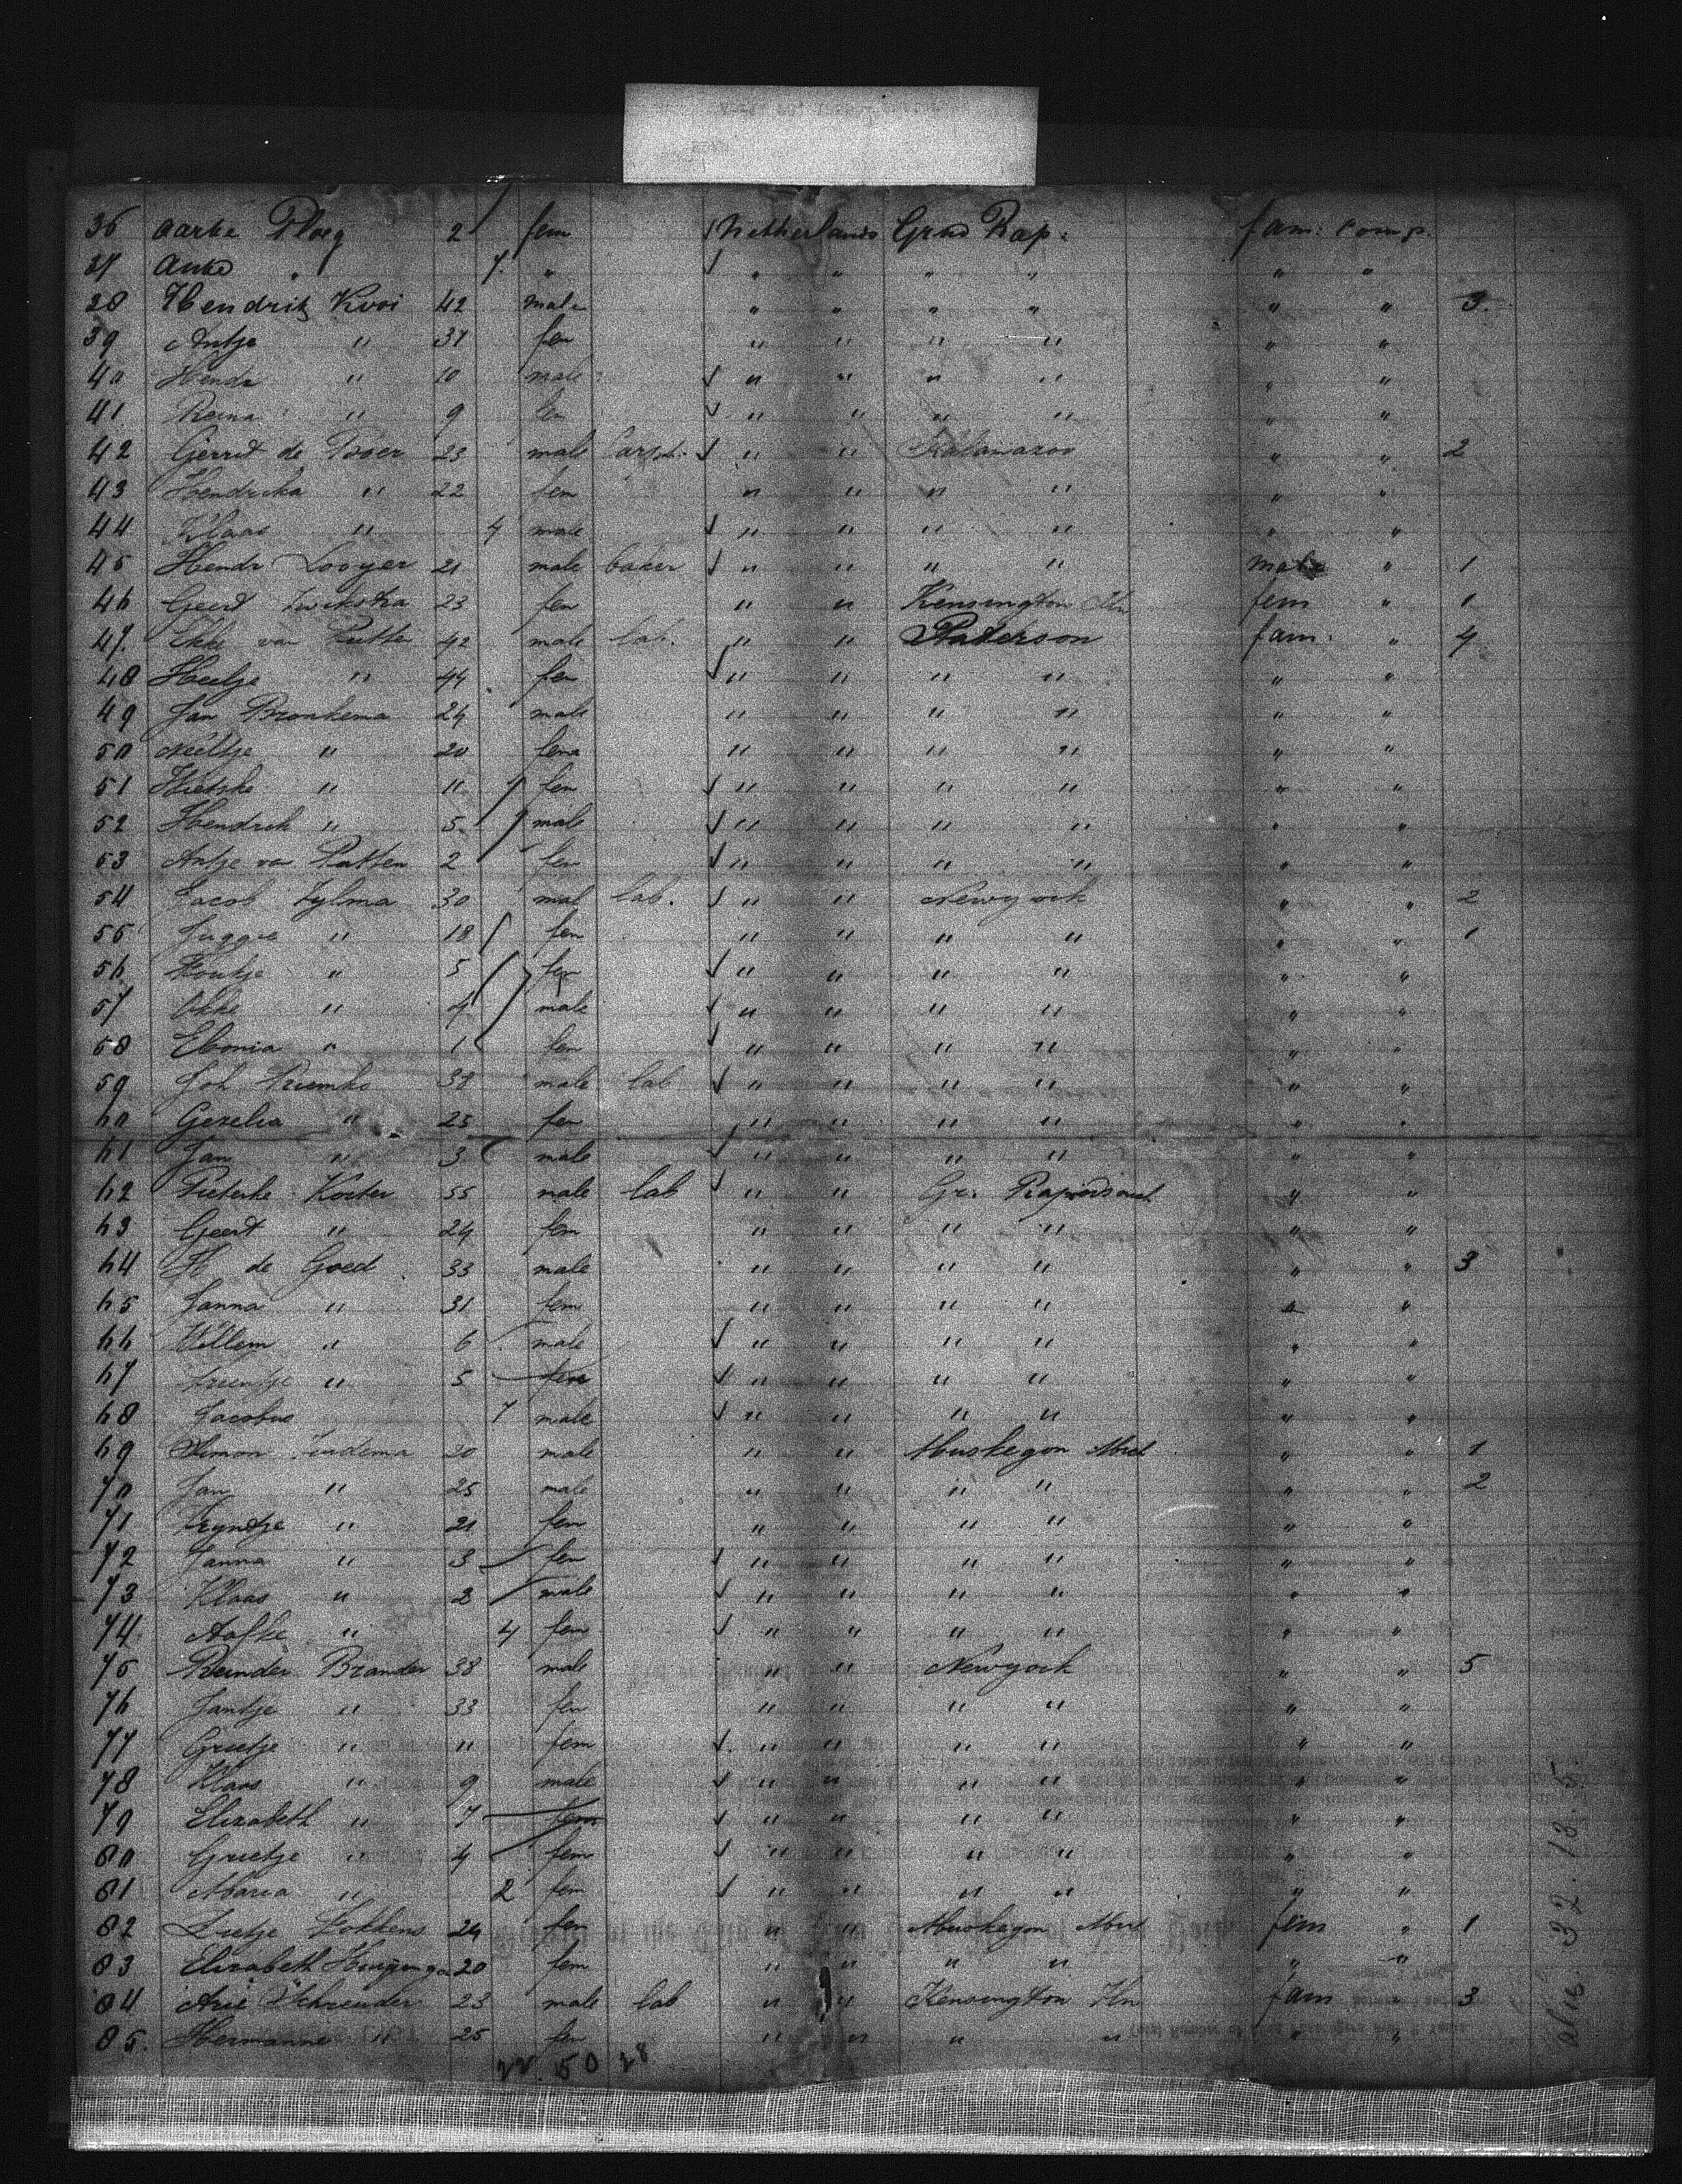 36 Aartie Ploeg 2 fem Netherlands Gran Rap: fam: comp.
37 Anke " 7. " " " " " " "
38 Hendrik Kooi 42 male " " " " " " 3.
39 Antje " 37 fem " " " " " "
40 Hendr " 10 male " " " " " "
41 Reina " 9 fem " " " " " "
42 Gerrit de Boer 23 male Carp. " " Kalamazoo " " 2
43 Hendrika " 22 fem " " " " " "
44 Klaas " 4 male " " " " " "
45 Hendr Looyer 21 male baker " " " " male " 1
46 Geert 23 fem " " Kensington fem " 1
47. van Putten 42 male lab. " " Paterson fam: " 4
48 Heelje " 44 fem " " " " " "
49 Jan Bronkema 24 male " " " " " "
50 Neeltje " 20 fem " " " " " "
51 Hietske " 11 fem " " " " " "
52 Hendrik " 5 male " " " " " "
53 Antje van Putten 2 fem " " " " " "
54 Jacob Zylma 30 mal lab. " " Newyork " " 2
55 " 18 fem " " " " " " 1
56 Foukje " 5 fem " " " " " "
57 Okke " 4 male " " " " " "
58 Ebonia " 1 fem " " " " " "
59 Joh Riemko male lab " " " " " "
60 Gezelia " 25 fem " " " " " "
61 Jan " 3 male " " " " " "
62 Pieterke Koster 55 male lab " " Gr. Rapids " "
63 Geert " 24 fem " " " " " "
64 H de Goed 33 male " " " " " " 3
65 Janna " 31 fem " " " " " "
66 Willem " 6 male " " " " " "
67 " 5 fem " " " " " "
68 Jacobus 7 male " " " " " "
69 Simon 20 male " " Muskegon Mich " " 1
70 Jan " 25 male " " " " " " 2
71 Tryntje " 21 fem " " " " " "
72 Janna " 3 fem " " " " " "
73 Klaas " 2 male " " " " " "
74 Aafke " 4 fem " " " " " "
75 Reinder Brander 38 male " " Newyork " " 5
76 Jantje " 33 fem " " " " " "
77 Grietje " 11 fem " " " " " "
78 Klaas " 9 male " " " " " "
79 Elizabeth " 7 fem " " " " " "
80 Grietje " 4 fem " " " " " "
81 Maria " 2 fem " " " " " "
82 Fokkens 24 fem " " Muskegon Mich fem " 1
83 Elizabeth 20 fem " " " " " "
84 Arie Schreuder 23 male lab " " Kensington fam " 3
85. Hermanne " 25 fem " " " " " "
22. 50 28
32. 18. 5.